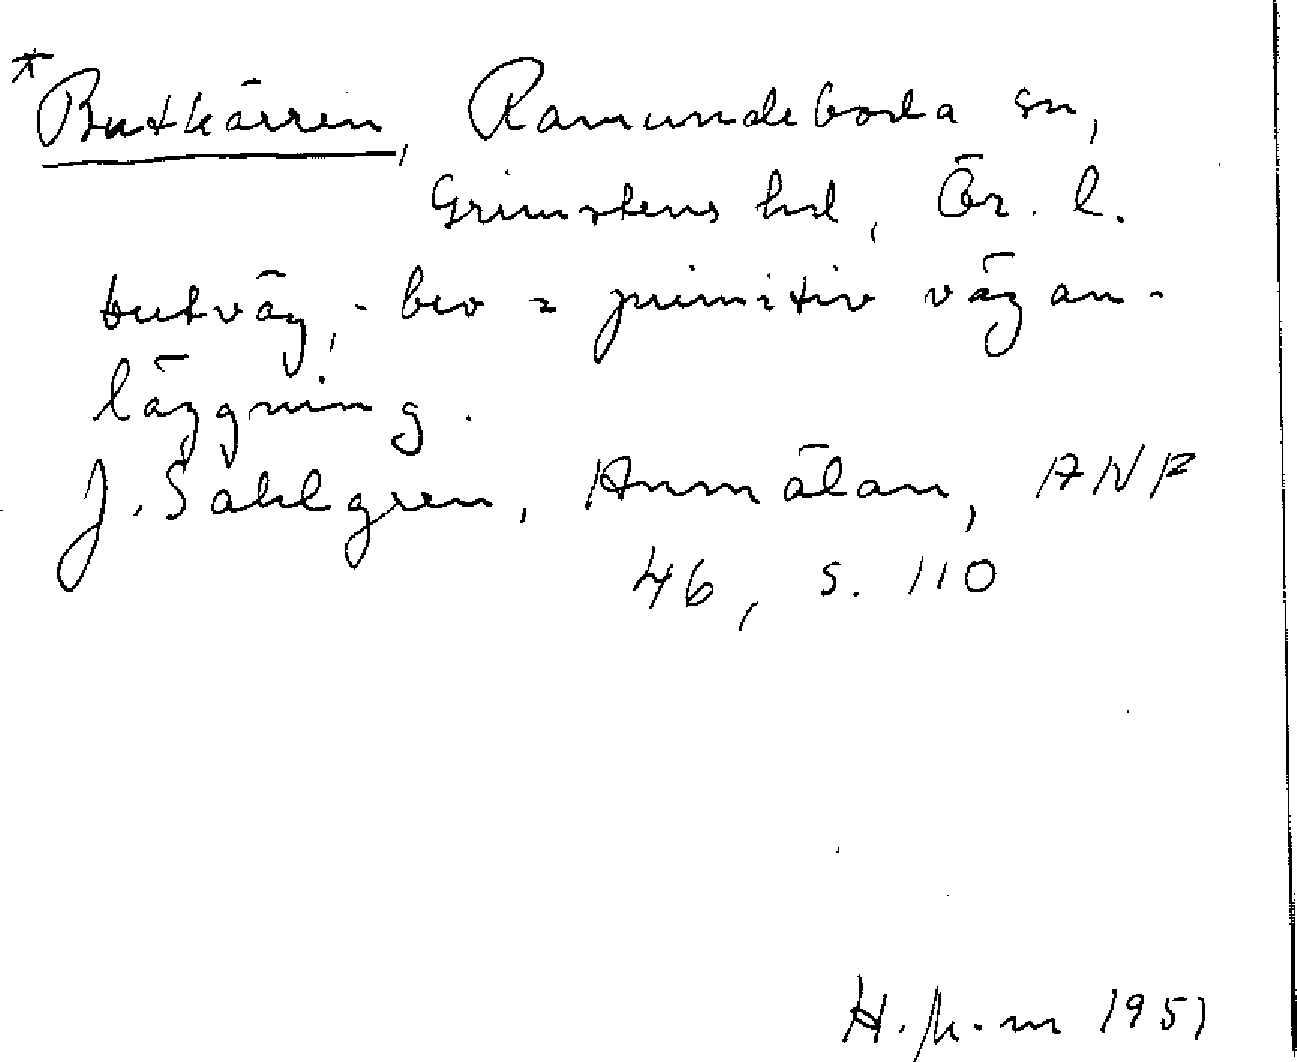 *Butkärren, Ramundeboda sn,
Grimstens hd, Ör. l.
butväg, - bro = primitiv vägan-
läggning.
J. Sahlgren, Anmälan, ANF
46, s. 110
1951